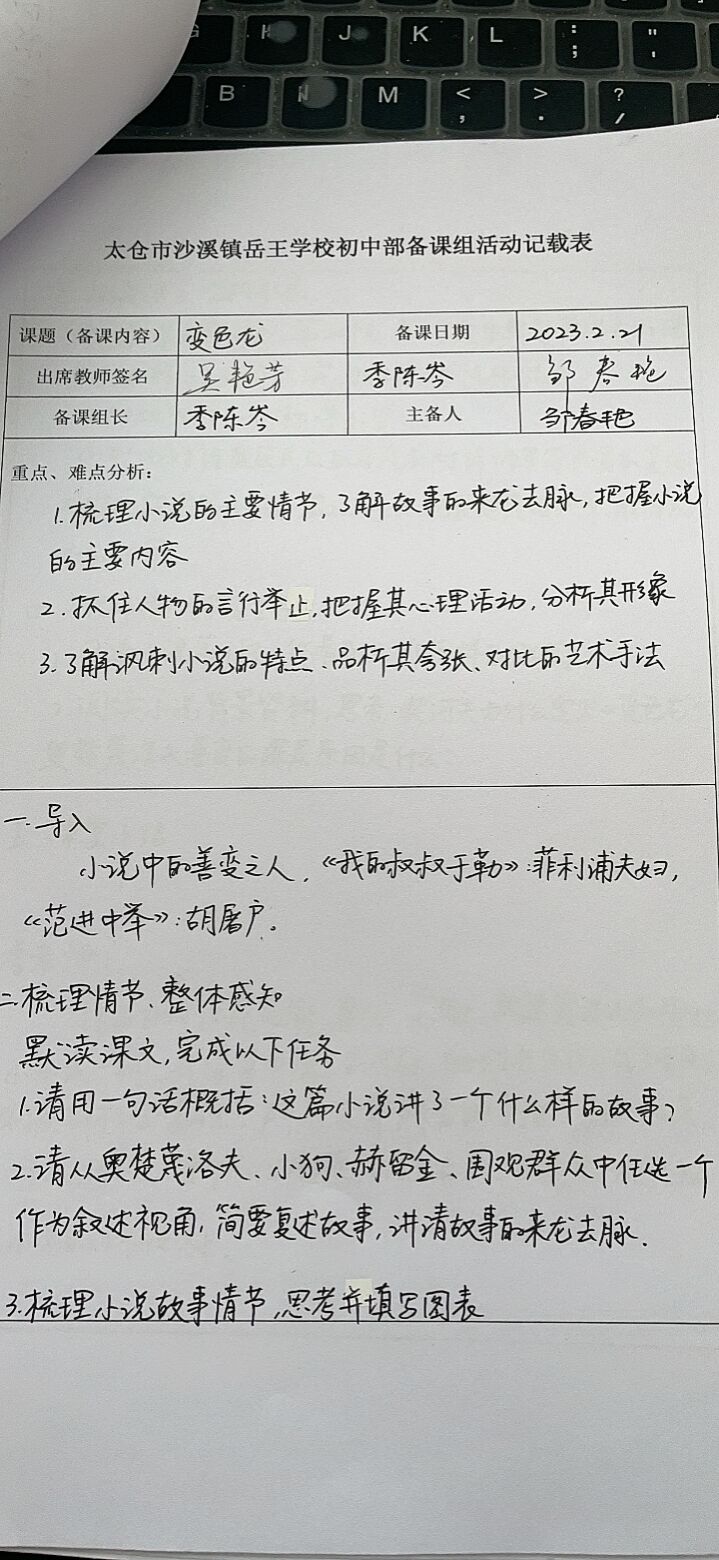 J K L : ;
B N M < , > . ? /
太仓市沙溪镇岳王学校初中部备课组活动记载表
课题（备课内容） 变色龙 备课日期 2023.2.21
出席教师签名 吴艳芳 季陈岑 邹春艳
备课组长 季陈岑 主备人 邹春艳
重点、难点分析：
1.梳理小说的主要情节，了解故事的来龙去脉，把握小说
的主要内容
2.抓住人物的言行举止，把握其心理活动，分析其形象
3.了解讽刺小说的特点、品析其夸张、对比的艺术手法
一.导入
小说中的善变之人，《我的叔叔于勒》：菲利浦夫妇，
《范进中举》：胡屠户。
二.梳理情节、整体感知
默读课文，完成以下任务
1.请用一句话概括：这篇小说讲了一个什么样的故事？
2.请从奥楚蔑洛夫、小狗、赫留金、围观群众中任选一个
作为叙述视角，简要复述故事，讲清故事的来龙去脉.
3.梳理小说故事情节，思考并填写图表